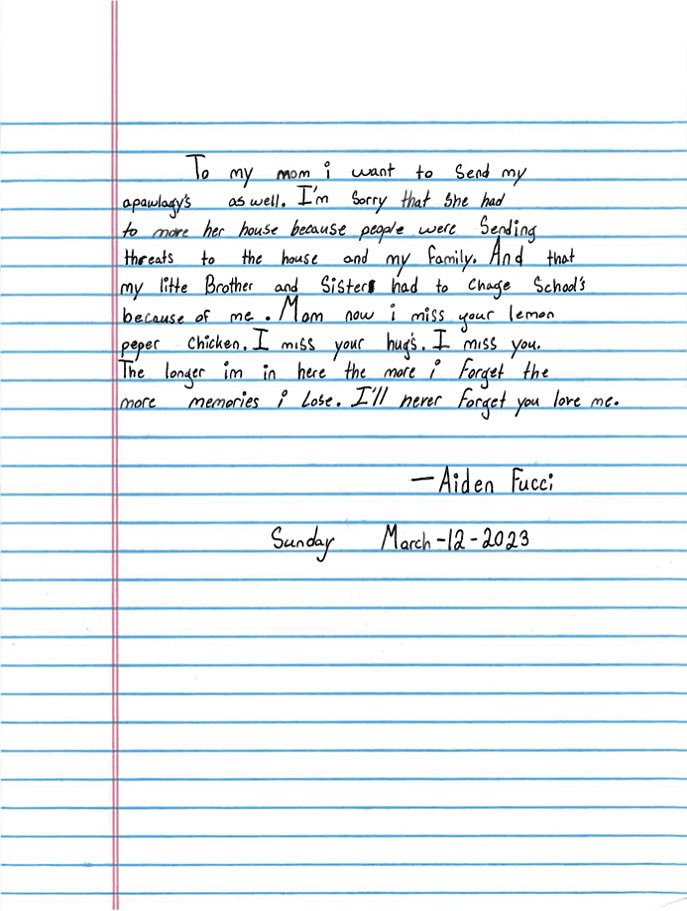 To my mom i want to Send my
apawlagy's as well. I'm Sorry that She had
to move her house because people were Sending
threats to the house and my family. And that
my litte Brother and Sisters had to chage School's
because of me. Mom now i miss your lemon
peper chicken. I miss your hug's. I miss you.
The longer im in here the more i forget the
more memories i Lose. I'll never forget you love me.
—Aiden Fucci
Sunday March-12-2023